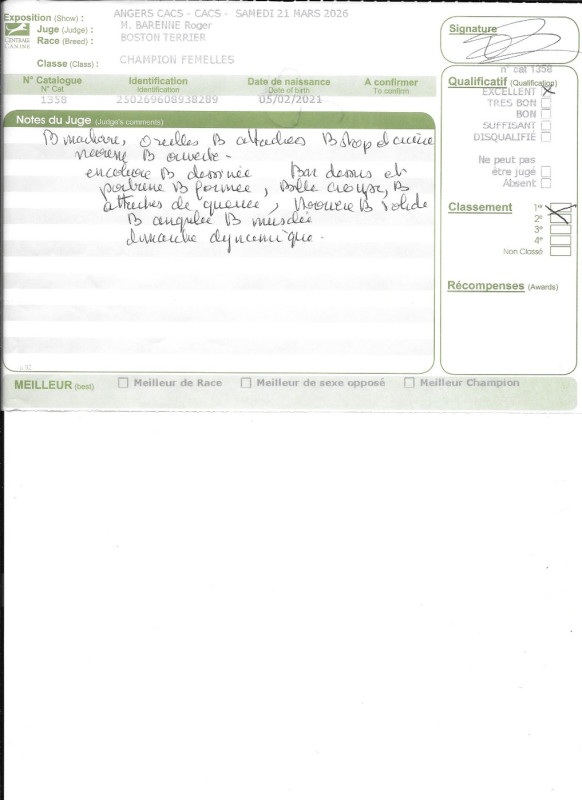 Exposition (Show) : ANGERS CACS - CACS - SAMEDI 21 MARS 2026
Juge (Judge) : M. BARENNE Roger
Race (Breed) : BOSTON TERRIER
CENTRALE CANINE
Classe (Class) : CHAMPION FEMELLES
N° Catalogue Identification Date de naissance A confirmer
N° Cat Identification Date of birth To confirm
1358 250269608938289 05/02/2021
Notes du Juge (Judge's comments)
B machoire, Oreilles B attachées B stop et
B ouverte -
encolure B dessinée Bon dessus et
poitrine B formée, Belle croupe, B
attaches de queue, B solide
B angulée B musclée
démarche dynamique.
MEILLEUR (best) Meilleur de Race Meilleur de sexe opposé Meilleur Champion
Signature
n° cat 1358
Qualificatif (Qualification)
EXCELLENT
TRES BON
BON
SUFFISANT
DISQUALIFIÉ
Ne peut pas
être jugé
Absent
Classement
1er
2e
3e
4e
Non Classé
Récompenses (Awards)